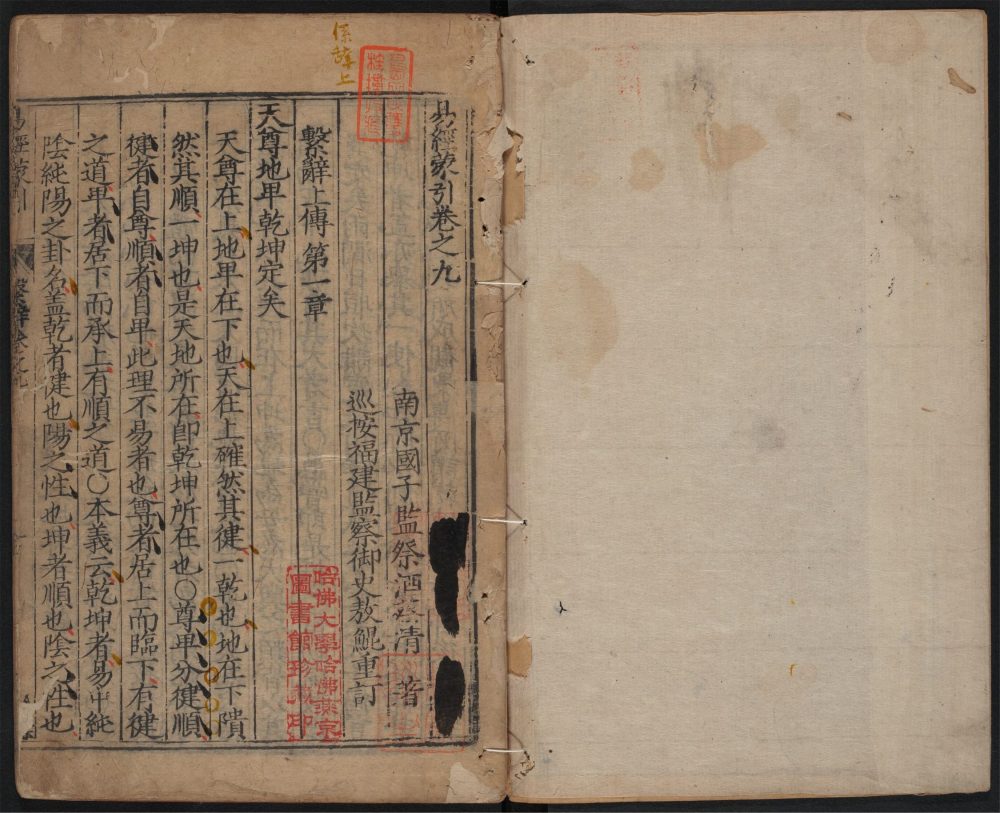 係辞上
易經蒙引卷之九
南京國子監祭酒蔡清 著
巡按福建監察御史敖鯤重訂
繫辭上傳第一章
天尊地卑乾坤定矣
天尊在上地卑在下也天在上確然其健一乾也地在下隤
然其順一坤也是天地所在即乾坤所在也〇尊卑分健順
健者自尊順者自卑此理不易者也尊者居上而臨下有健
之道卑者居下而承上有順之道〇本義云乾坤者易中純
陰純陽之卦名盖乾者健也陽之性也坤者順也陰之性也
易經蒙引
哈佛大學哈佛燕京
圖書館珍藏印